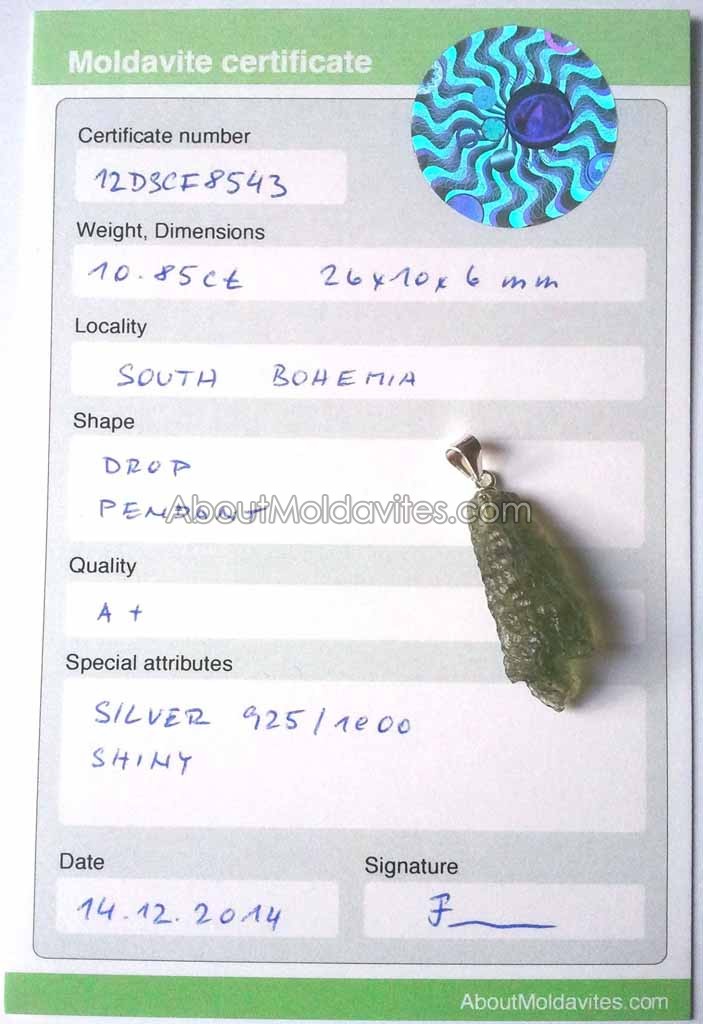 Moldavite certificate
Certificate number
12D3CF8543
Weight, Dimensions
10.85ct 26x10x6 mm
Locality
SOUTH BOHEMIA
Shape
DROP
PENDANT
AboutMoldavites.com
Quality
A+
Special attributes
SILVER 925/1000
SHINY
Date
Signature
14.12.2014
AboutMoldavites.com